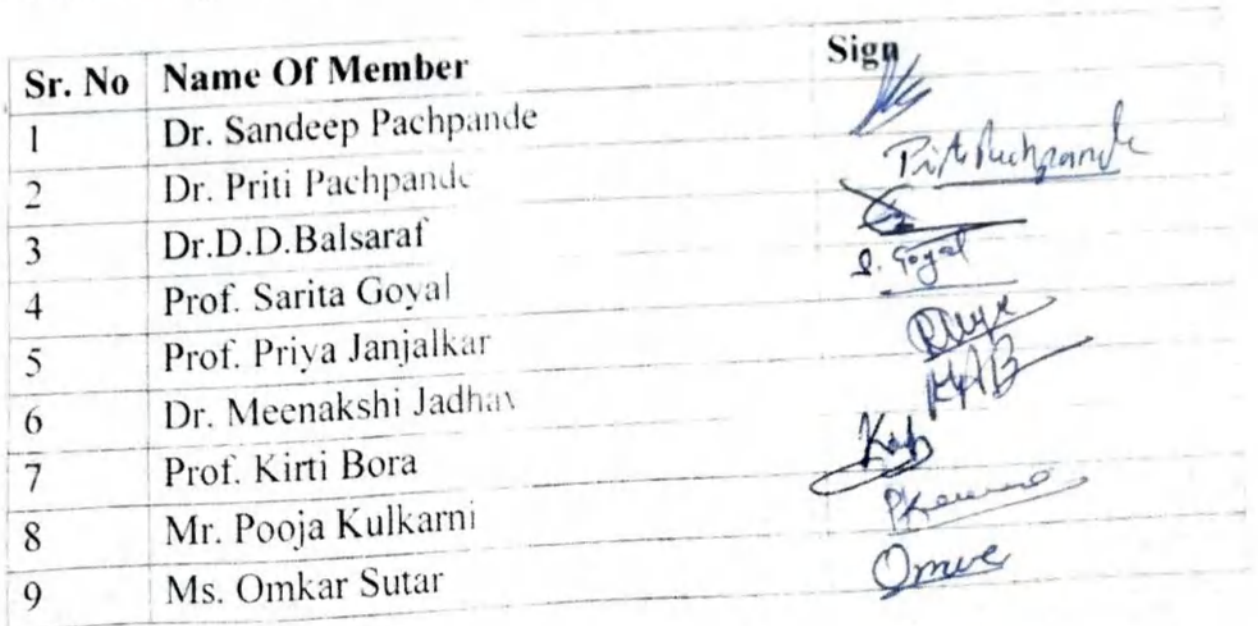 Sr. No Name Of Member Sign
1 Dr. Sandeep Pachpande
2 Dr. Priti Pachpande Priti Pachpande
3 Dr.D.D.Balsaraf
4 Prof. Sarita Goyal S. Goyal
5 Prof. Priya Janjalkar
6 Dr. Meenakshi Jadhav
7 Prof. Kirti Bora
8 Mr. Pooja Kulkarni
9 Ms. Omkar Sutar